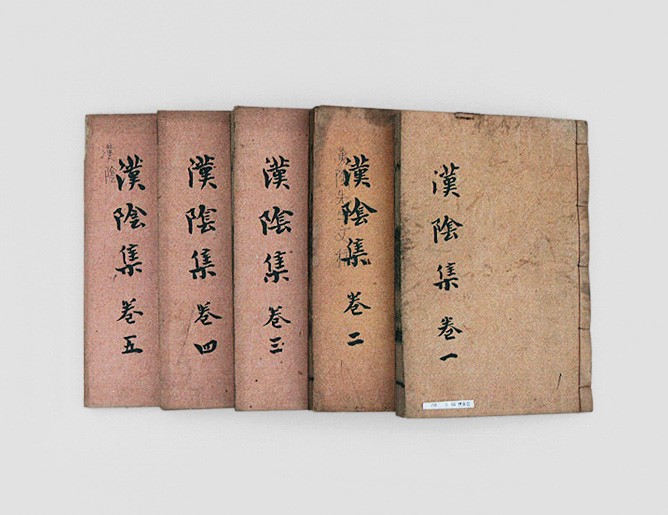 漢陰集 卷一
漢陰集 卷二
漢陰集 卷三
漢陰集 卷四
漢陰集 卷五
漢陰